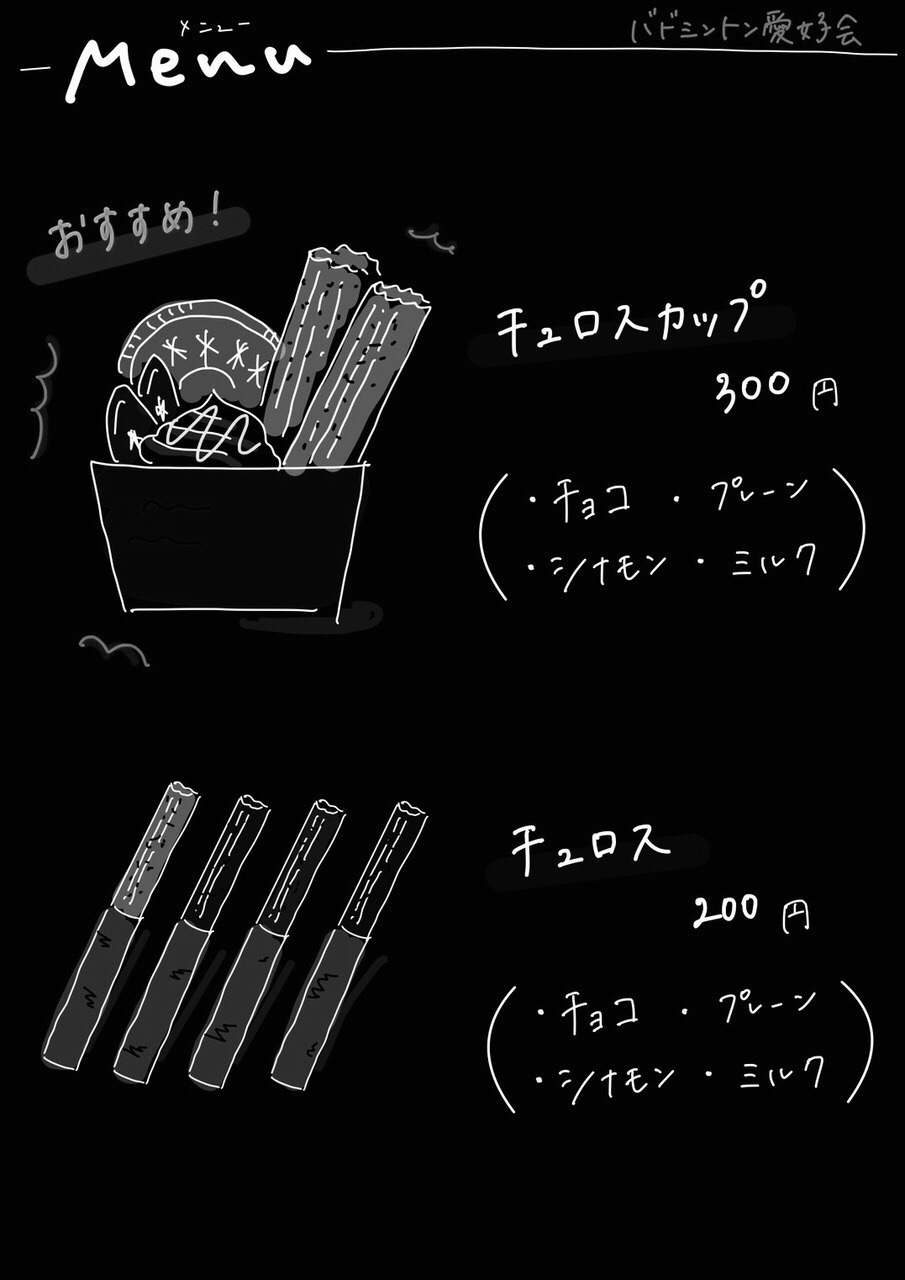 メニュー
Menu
バドミントン愛好会
おすすめ!
チュロスカップ
300 円
・チョコ ・プレーン
・シナモン ・ミルク
チュロス
200 円
・チョコ ・プレーン
・シナモン ・ミルク